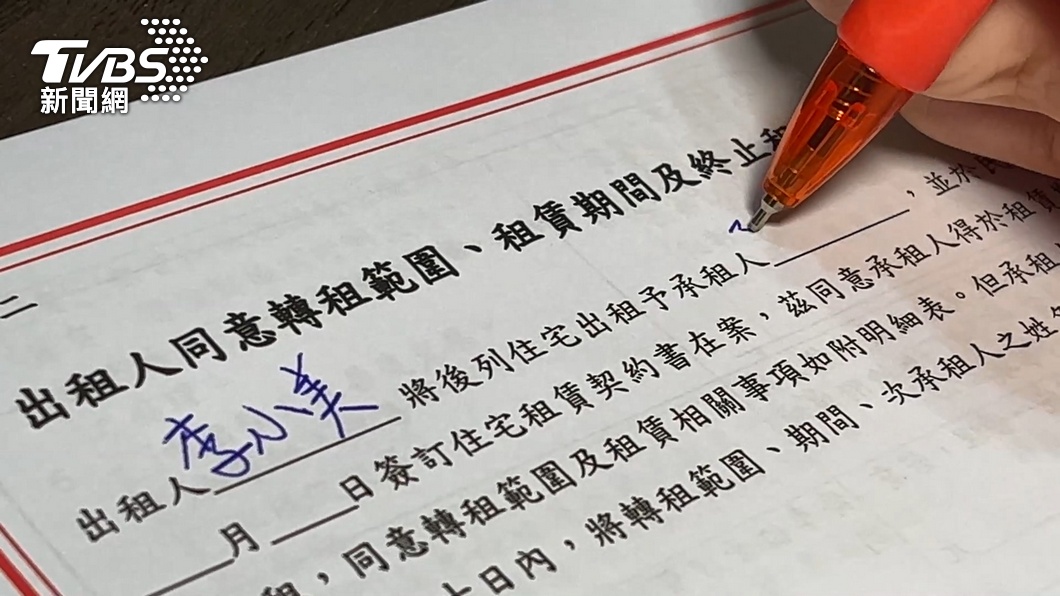 TVBS
新聞網
二
出租人同意轉租範圍、租賃期間及終止租
出租人李小美將後列住宅出租予承租人，並於民
月 日簽訂住宅租賃契約書在案，茲同意承租人得於租賃
，同意轉租範圍及租賃相關事項如附明細表。但承租
日內，將轉租範圍、期間、次承租人之姓名